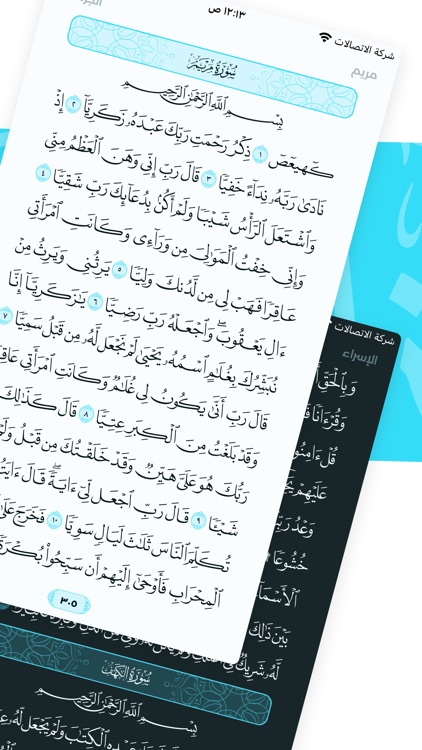 شركة الاتصالات ١٢:١٣ ص
مريم
سُورَةُ مَرْيَمَ
بِسْمِ ٱللَّهِ ٱلرَّحْمَٰنِ ٱلرَّحِيمِ
كٓهيعٓصٓ ١ ذِكْرُ رَحْمَتِ رَبِّكَ عَبْدَهُۥ زَكَرِيَّآ ٢ إِذْ
نَادَىٰ رَبَّهُۥ نِدَآءً خَفِيًّا ٣ قَالَ رَبِّ إِنِّي وَهَنَ ٱلْعَظْمُ مِنِّي
وَٱشْتَعَلَ ٱلرَّأْسُ شَيْبًا وَلَمْ أَكُنۢ بِدُعَآئِكَ رَبِّ شَقِيًّا ٤
وَإِنِّي خِفْتُ ٱلْمَوَٰلِيَ مِن وَرَآءِي وَكَانَتِ ٱمْرَأَتِي
عَاقِرًا فَهَبْ لِي مِن لَّدُنكَ وَلِيًّا ٥ يَرِثُنِي وَيَرِثُ مِنْ
ءَالِ يَعْقُوبَ ۖ وَٱجْعَلْهُ رَبِّ رَضِيًّا ٦ يَٰزَكَرِيَّآ إِنَّا
نُبَشِّرُكَ بِغُلَٰمٍ ٱسْمُهُۥ يَحْيَىٰ لَمْ نَجْعَل لَّهُۥ مِن قَبْلُ سَمِيًّا ٧
قَالَ رَبِّ أَنَّىٰ يَكُونُ لِي غُلَٰمٌ وَكَانَتِ ٱمْرَأَتِي
وَقَدْ بَلَغْتُ مِنَ ٱلْكِبَرِ عِتِيًّا ٨ قَالَ كَذَٰلِكَ
رَبُّكَ هُوَ عَلَيَّ هَيِّنٌ وَقَدْ خَلَقْتُكَ مِن قَبْلُ وَلَمْ
شَيْـًٔا ٩ قَالَ رَبِّ ٱجْعَل لِّيٓ ءَايَةً ۚ قَالَ
تُكَلِّمَ ٱلنَّاسَ ثَلَٰثَ لَيَالٍ سَوِيًّا ١٠ فَخَرَجَ عَلَىٰ
ٱلْمِحْرَابِ فَأَوْحَىٰٓ إِلَيْهِمْ أَن سَبِّحُوا۟ بُكْرَةً
٣٠٥
شركة الاتصالات
الإسراء
وَبِٱلْحَقِّ
وَقُرْءَانًا
قُلْ ءَامِنُوا۟
عَلَيْهِمْ
وَعْدُ
خُشُوعًا
ٱلْأَسْمَآءُ
بَيْنَ ذَٰلِكَ
لَّهُۥ شَرِيكٌ فِي
سُورَةُ ٱلْكَهْفِ
بِسْمِ ٱللَّهِ ٱلرَّحْمَٰنِ ٱلرَّحِيمِ
عَبْدِهِ ٱلْكِتَٰبَ وَلَمْ يَجْعَل لَّهُۥ